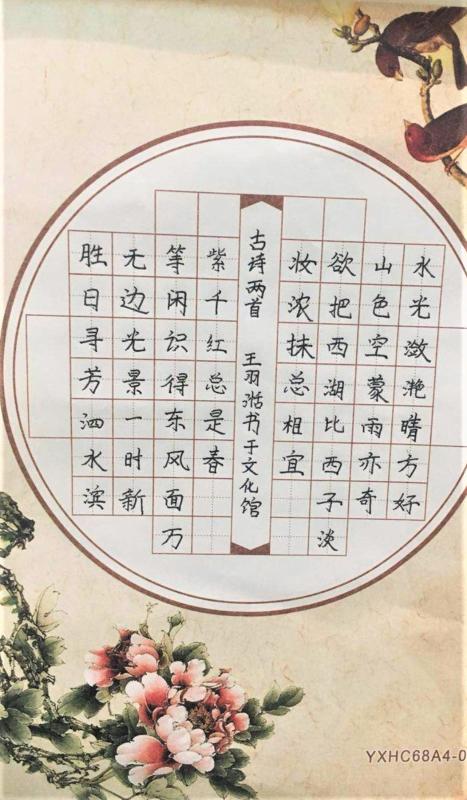 水光潋滟晴方好
山色空蒙雨亦奇
欲把西湖比西子淡
妆浓抹总相宜
古诗两首 王羽书于文化馆
胜日寻芳泗水滨
无边光景一时新
等闲识得东风面万
紫千红总是春
YXHC68A4-0